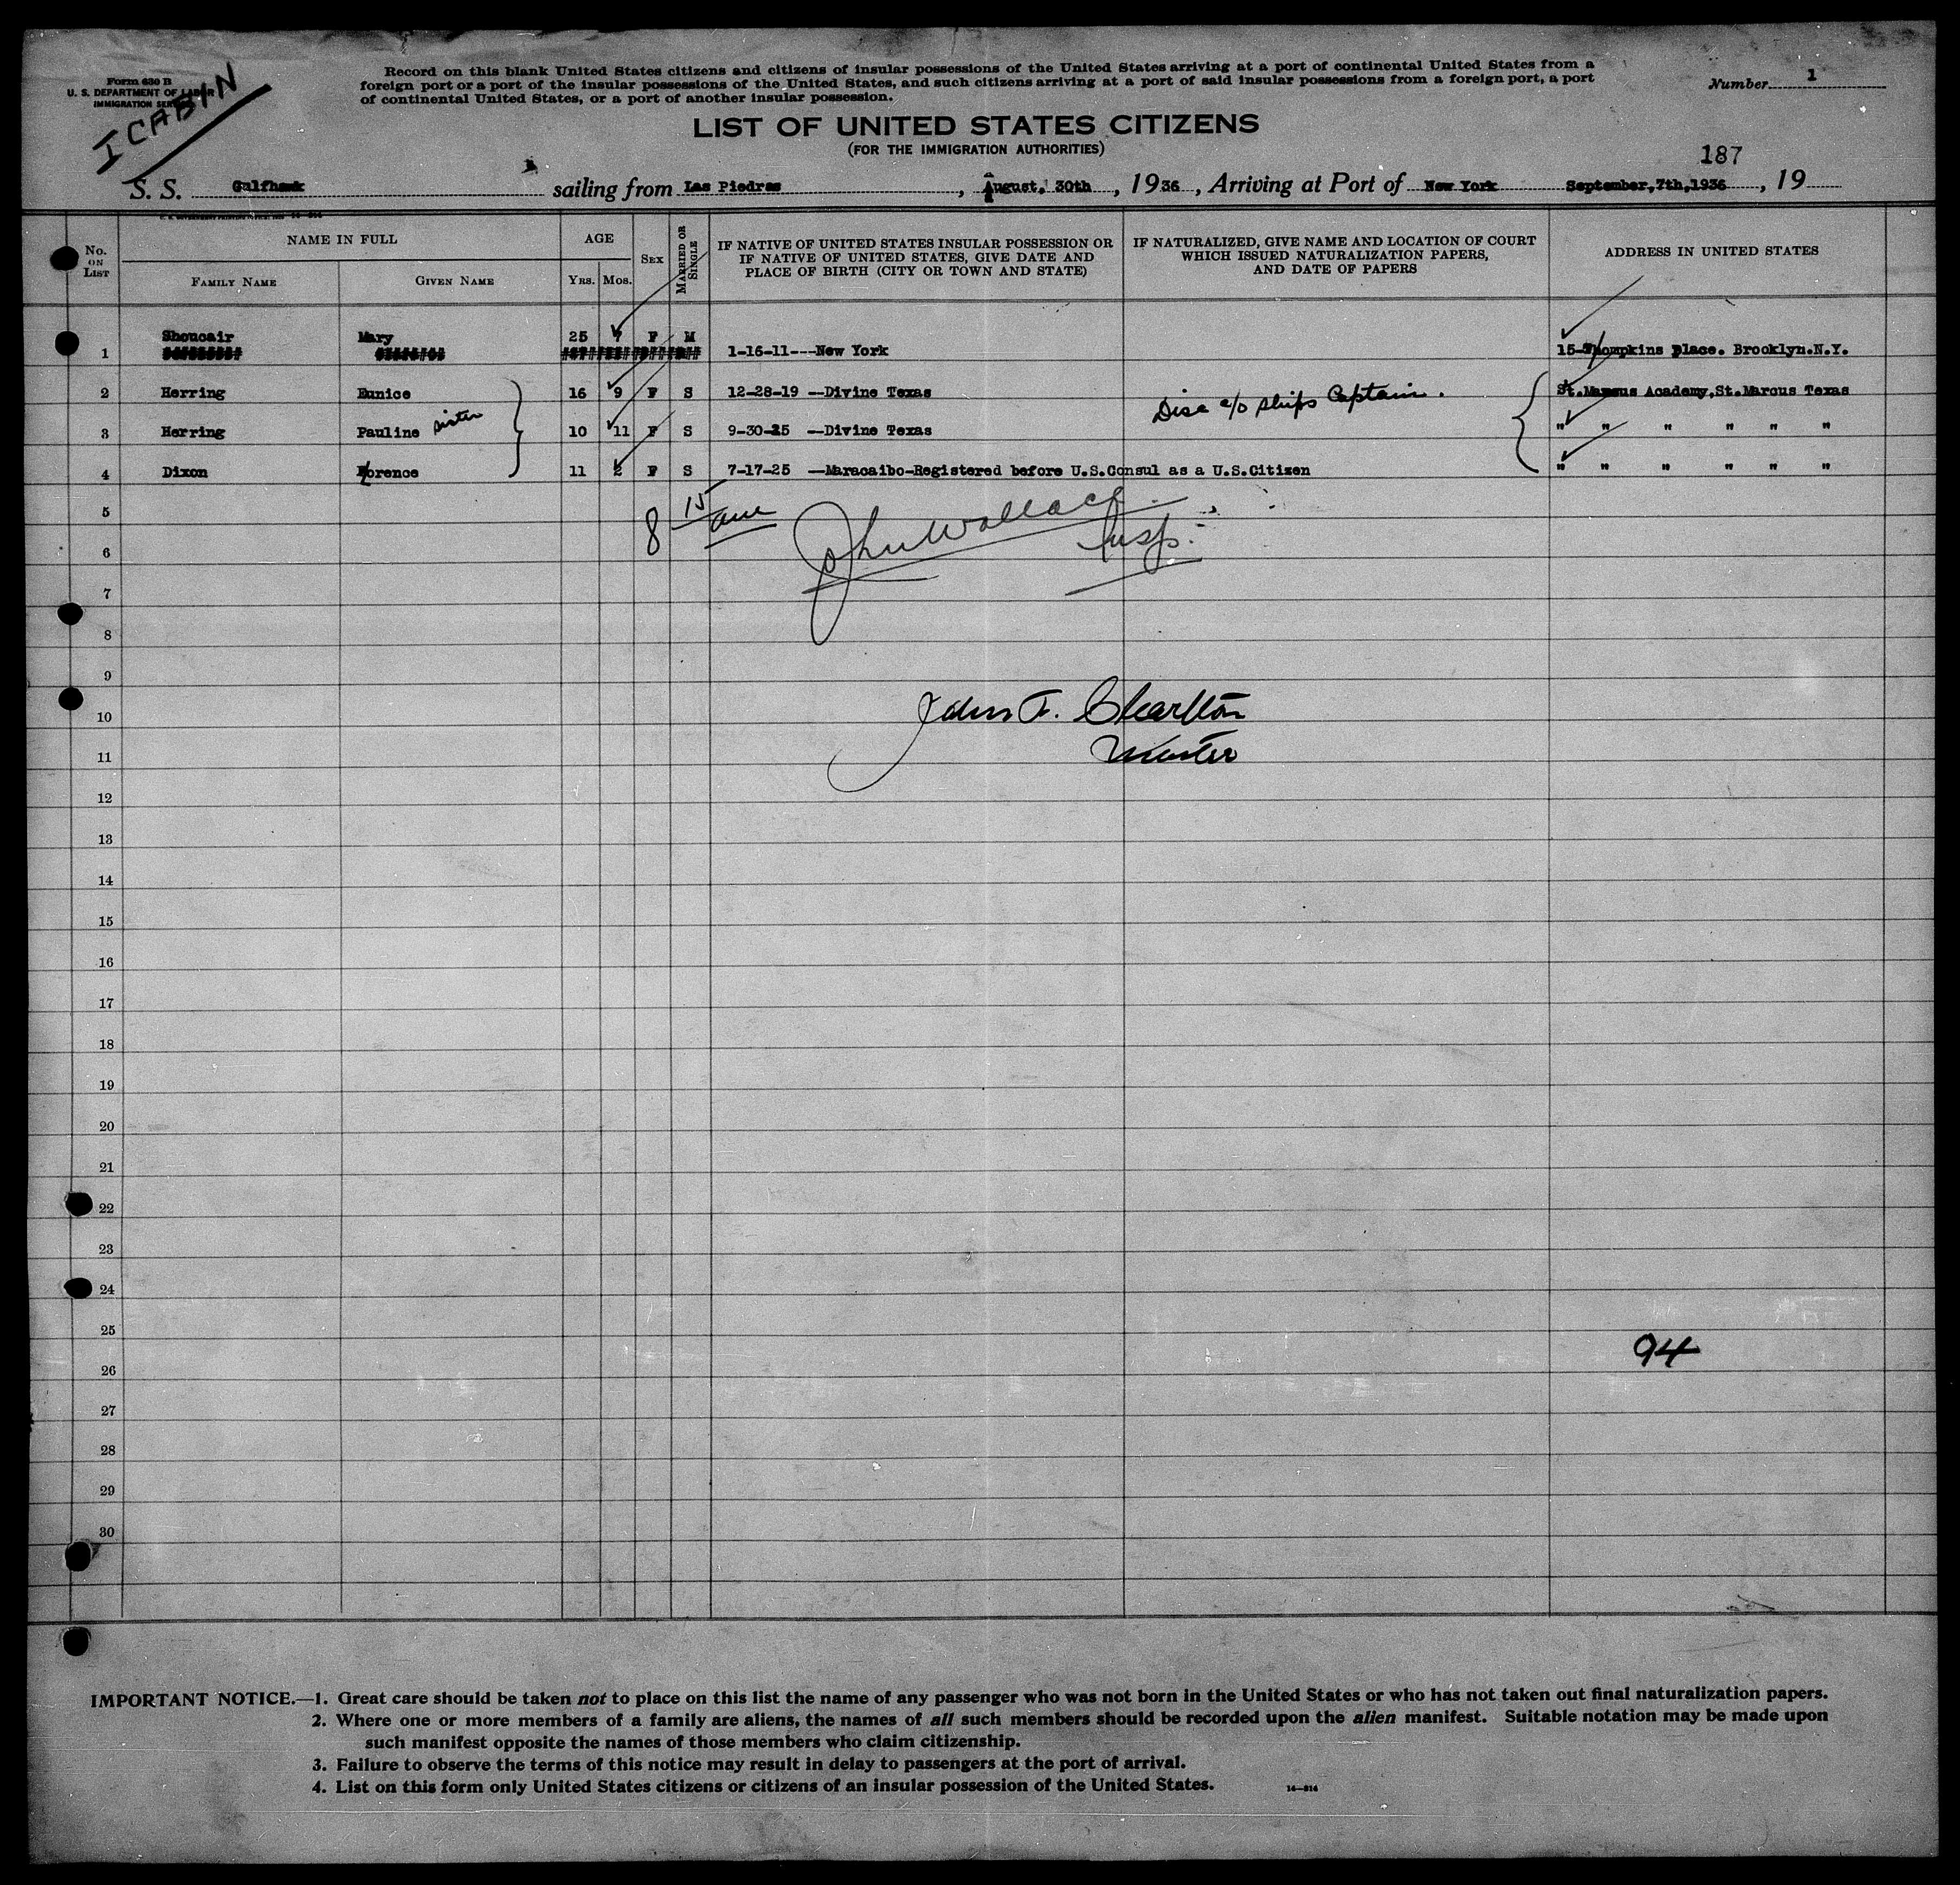 Form 630 B
U. S. DEPARTMENT OF LABOR
IMMIGRATION SERVICE
I CABIN
Record on this blank United States citizens and citizens of insular possessions of the United States arriving at a port of continental United States from a
foreign port or a port of the insular possessions of the United States, and such citizens arriving at a port of said insular possessions from a foreign port, a port
of continental United States, or a port of another insular possession.
Number 1
LIST OF UNITED STATES CITIZENS
(FOR THE IMMIGRATION AUTHORITIES)
187
S. S. Gulfhawk sailing from Las Piedras, August, 30th, 1936, Arriving at Port of New York September,7th,1936, 19
No. ON LIST
NAME IN FULL
FAMILY NAME
GIVEN NAME
AGE
YRS. MOS.
SEX
MARRIED OR SINGLE
IF NATIVE OF UNITED STATES INSULAR POSSESSION OR
IF NATIVE OF UNITED STATES, GIVE DATE AND
PLACE OF BIRTH (CITY OR TOWN AND STATE)
IF NATURALIZED, GIVE NAME AND LOCATION OF COURT
WHICH ISSUED NATURALIZATION PAPERS,
AND DATE OF PAPERS
ADDRESS IN UNITED STATES
1 Shoucair Mary 25 7 F M 1-16-11---New York 15-Thompkins place. Brooklyn.N.Y.
2 Herring Eunice 16 9 F S 12-28-19 --Divine Texas St.Marcus Academy,St.Marcus Texas
Disc c/o ships Captain.
3 Herring Pauline sister 10 11 F S 9-30-25 --Divine Texas " " " " " "
4 Dixon Florence 11 2 F S 7-17-25 --Maracaibo-Registered before U.S.Consul as a U.S.Citizen " " " " " "
5
8 15 am John Wallace Insp.
6
7
8
9
10 John F. Charlton
11 Master
12
13
14
15
16
17
18
19
20
21
22
23
24
25
94
26
27
28
29
30
IMPORTANT NOTICE.—1. Great care should be taken not to place on this list the name of any passenger who was not born in the United States or who has not taken out final naturalization papers.
2. Where one or more members of a family are aliens, the names of all such members should be recorded upon the alien manifest. Suitable notation may be made upon
such manifest opposite the names of those members who claim citizenship.
3. Failure to observe the terms of this notice may result in delay to passengers at the port of arrival.
4. List on this form only United States citizens or citizens of an insular possession of the United States.
14—814